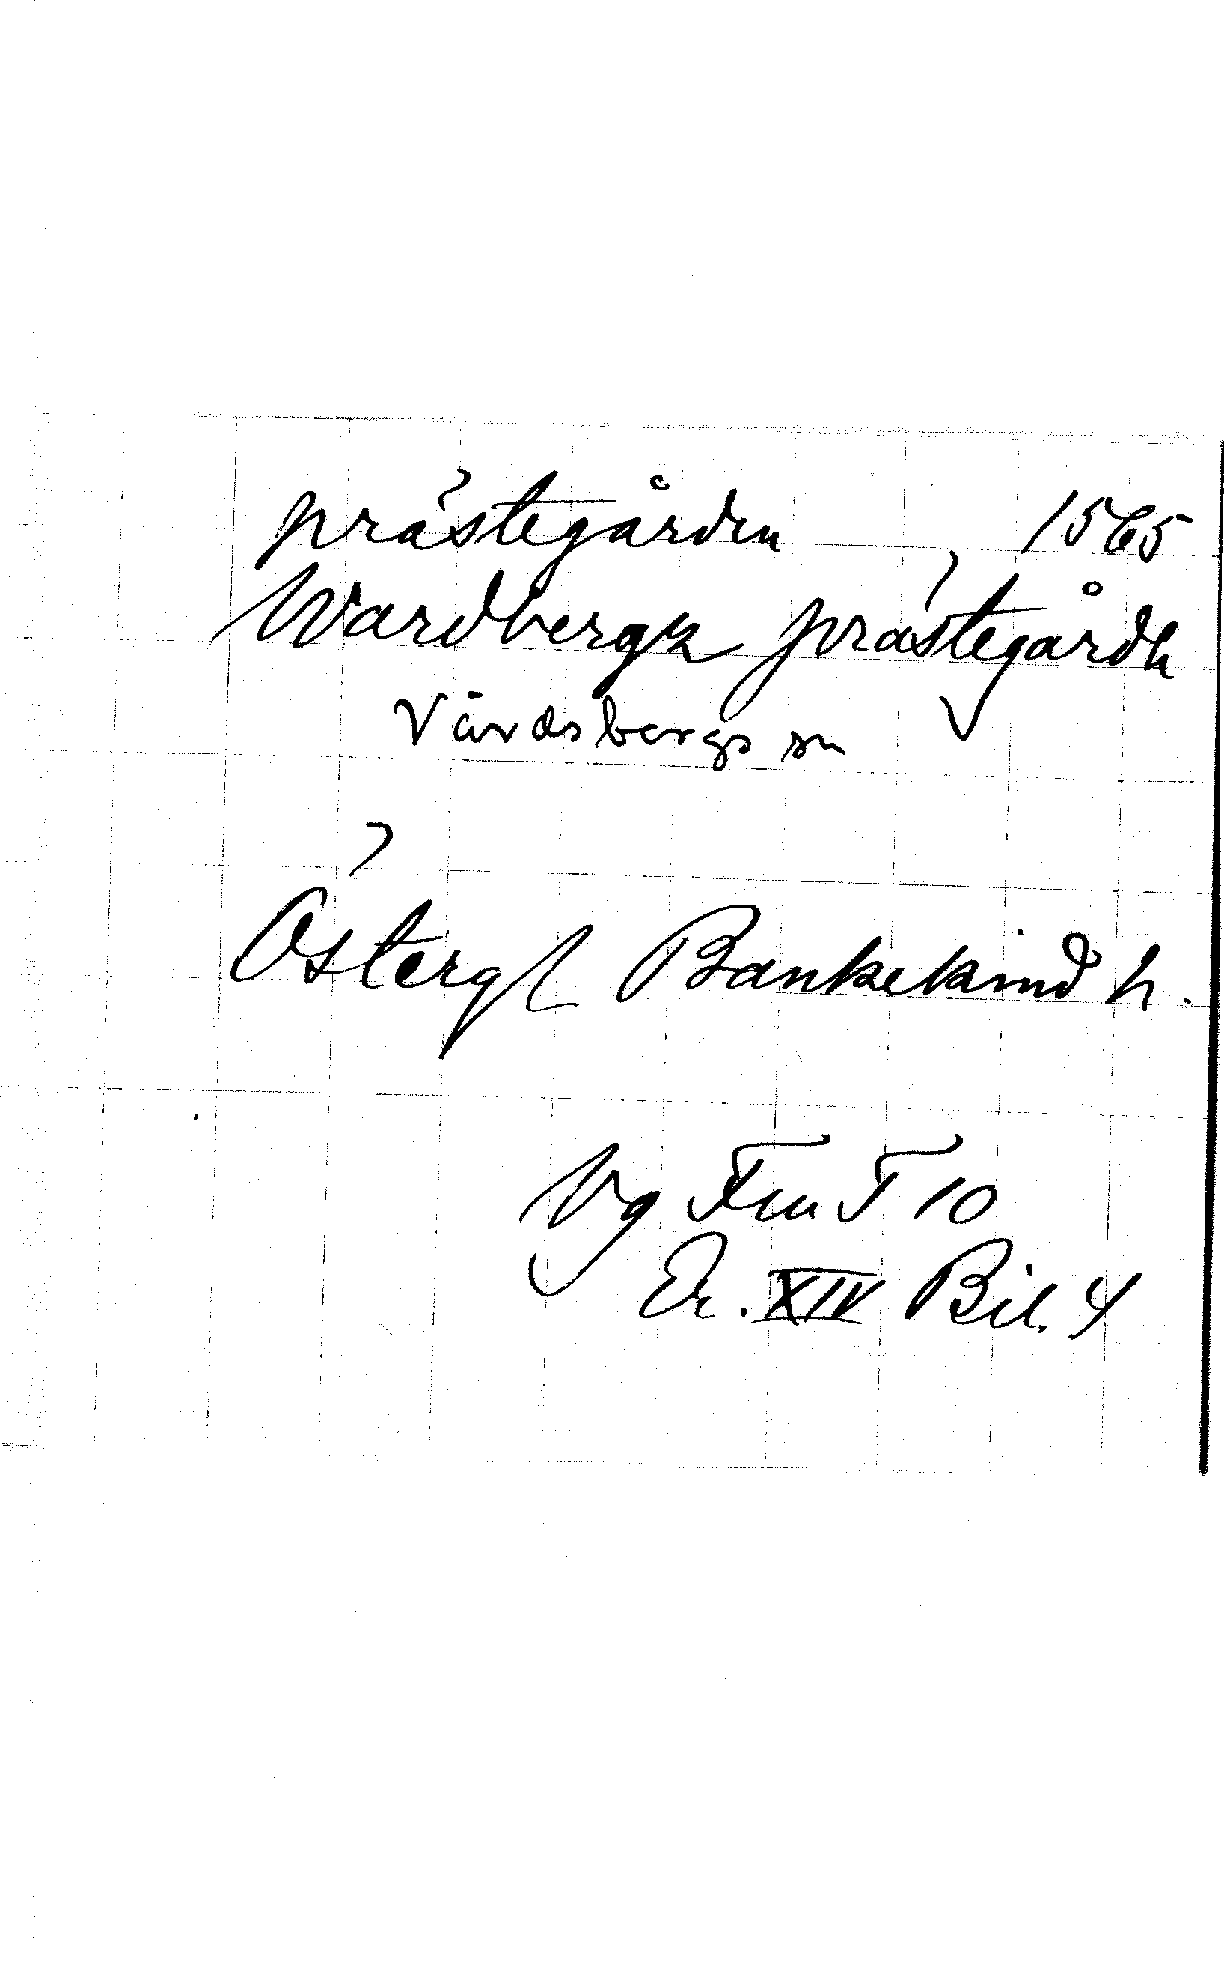 prästegården 1565
Wardbergz prästegårdh
Vårdsbergs sn
Östergl Bankekind h.
Vg Fm T 10
Er. XIV Bil. 4